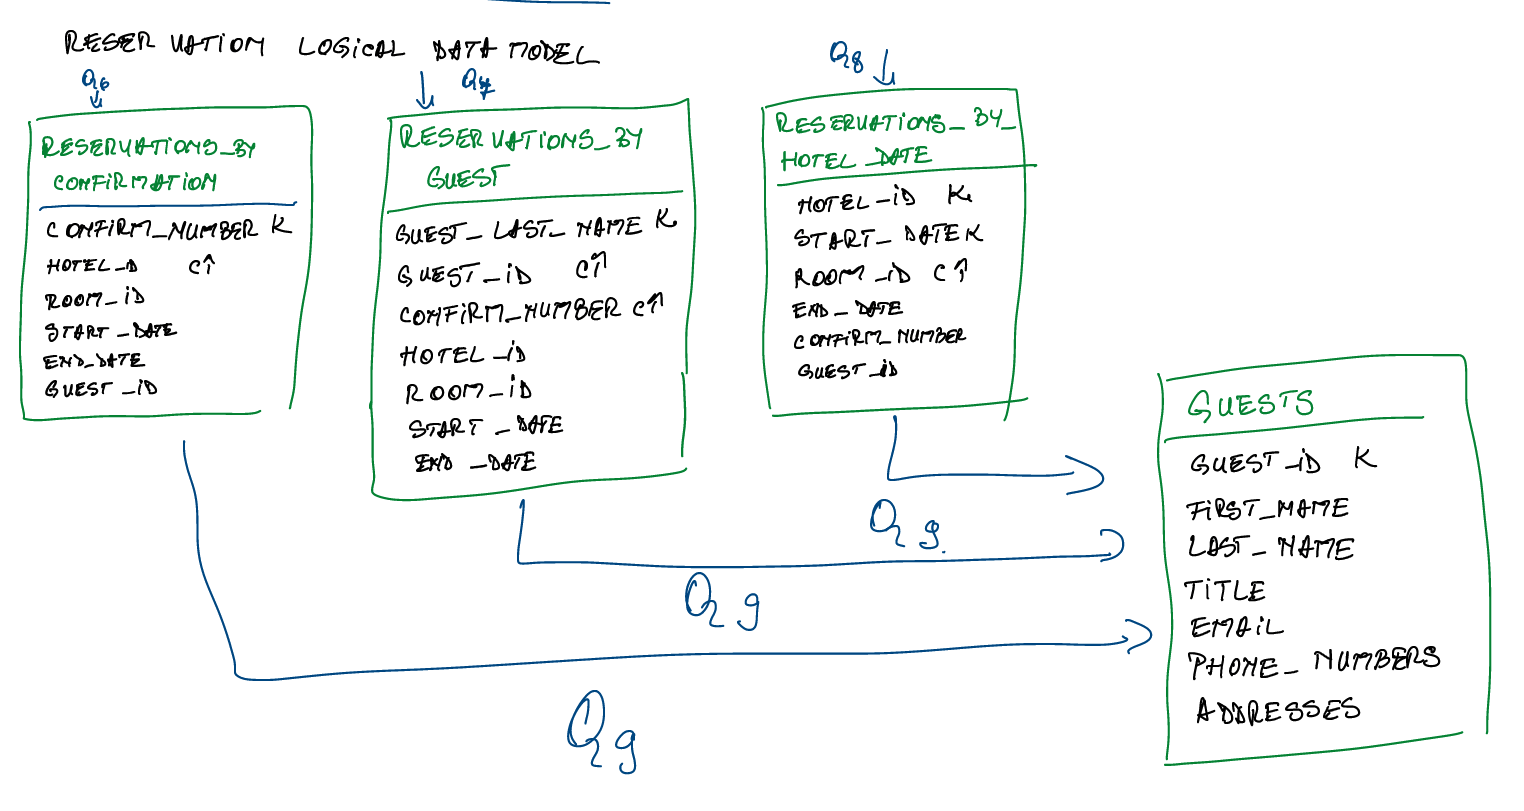 RESERVATION LOGICAL DATA MODEL
Q6
RESERVATIONS_BY
CONFIRMATION
CONFIRM_NUMBER K
HOTEL_ID C↑
ROOM_ID
START_DATE
END_DATE
GUEST_ID
Q7
RESERVATIONS_BY
GUEST
GUEST_LAST_NAME K
GUEST_ID C↑
CONFIRM_NUMBER C↑
HOTEL_ID
ROOM_ID
START_DATE
END_DATE
Q8
RESERVATIONS_BY_
HOTEL_DATE
HOTEL_ID K
START_DATE K
ROOM_ID C↑
END_DATE
CONFIRM_NUMBER
GUEST_ID
GUESTS
GUEST_ID K
FIRST_NAME
LAST_NAME
TITLE
EMAIL
PHONE_NUMBERS
ADDRESSES
Q9
Q9
Q9